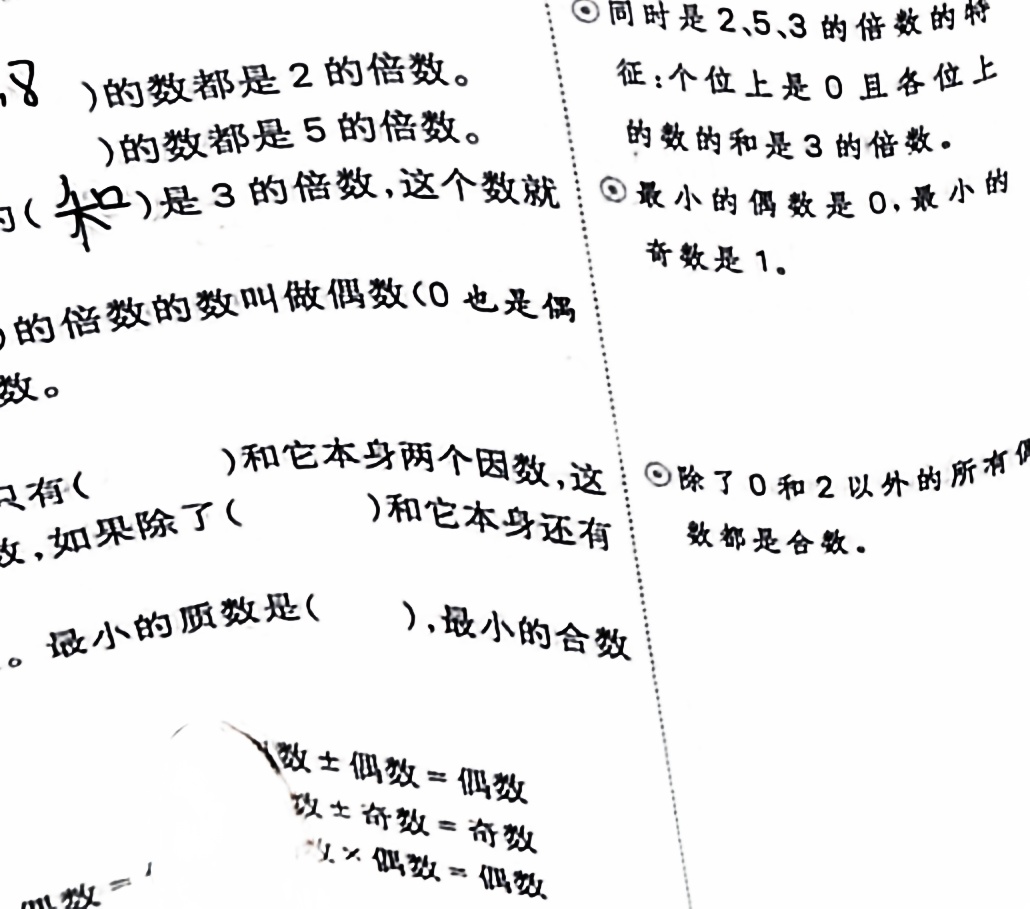 .8 )的数都是2的倍数。
)的数都是5的倍数。
的(和)是3的倍数,这个数就
)的倍数的数叫做偶数(0也是偶
数。
只有( )和它本身两个因数,这
数,如果除了( )和它本身还有
。最小的质数是( ),最小的合数
数±偶数=偶数
数±奇数=奇数
数×偶数=偶数
偶数=
⊙同时是2、5、3的倍数的特
征:个位上是0且各位上
的数的和是3的倍数。
⊙最小的偶数是0,最小的
奇数是1。
⊙除了0和2以外的所有偶
数都是合数。